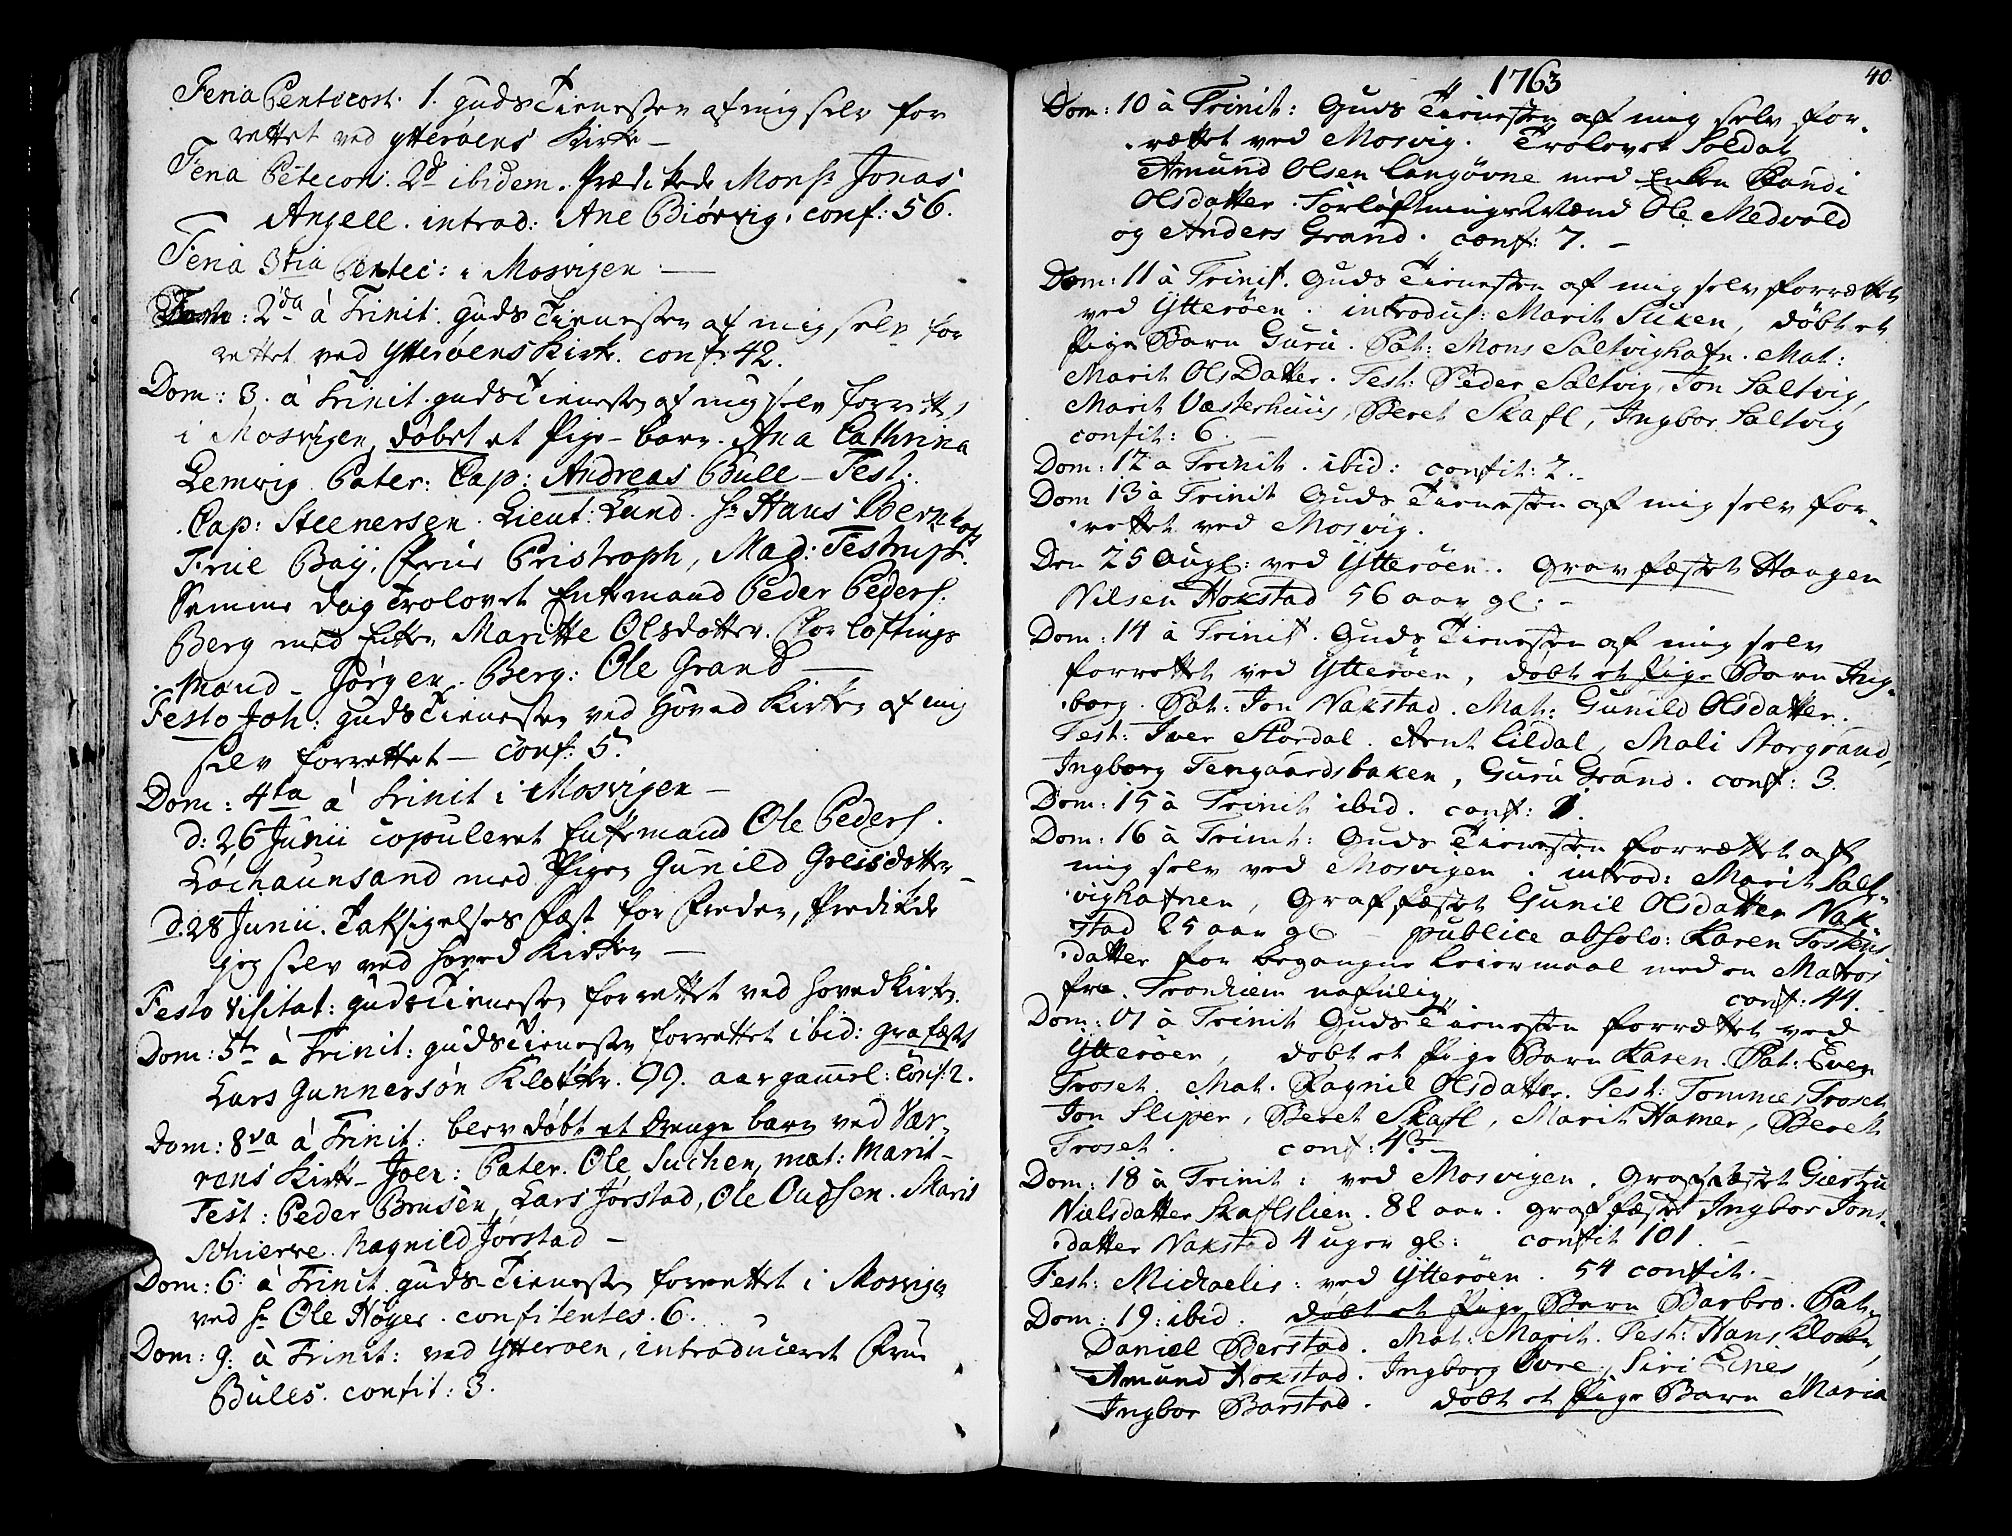 Feria Pentecost. 1. Guds Tienesten af mig selv for
rettet ved Ytterøens Kirke —
Feria Petecost. 2d ibidem. Prædikede Monsr Jonas
Angell. introd: Ane Biørvig. conf: 56.
Feria 3tia Pentec: i Mosvigen —
Dom: 2da à Trinit: Guds Tienesten af mig selv for
rettet ved Ytterøens Kirke. conf: 42.
Dom: 3. à Trinit. Guds Tienesten af mig selv forrettet
i Mosvigen, døbet et Pige-barn. Ana Cathrina
Lemvig. Pater: Cap: Andreas Bull — Test:
Cap: Steenersen. Lieut: Lund. Hr Hans
Frue Baÿ. Frue Pristroph, Mad: Testrup.
Samme dag Trolovet Enkemand Peder Peders:
Berg med Enken Maritte Olsdatter. Forloftings
mænd — Jørgen Berg: Ole Grand —
Festo Joh: Guds Tienesten ved Hoved Kirken af mig
selv forrettet — conf: 5.
Dom: 4ta à Trinit: i Mosvigen —
d: 26 Junii copuleret Enkemand Ole Peders.
Lochaunsand med Pigen Gunild Greisdatter —
D. 28 Junii. Taksigelses Fæst for Freden, Predikede
jeg selv ved Hoved Kirken —
Festo Visitat: Guds Tienesten forrettet ved Hovedkirken.
Dom: 5te à Trinit: Guds Tienesten forrettet ibid: grafæstet
Lars Gunnersøn Klokker. 99. aar gammel: Conf: 2.
Dom: 8va à Trinit: blev døbt et Drenge barn ved Vær-
rens Kirke — Joer: Pater. Ole Suchen, mat: Marit —
Test: Peder Brusen, Lars Jørstad, Ole Oudsen. Marit
Schierre. Ragnild Jørstad —
Dom: 6: à Trinit. Guds Tienesten forrettet i Mosvigen
ved Hr Ole Høyer. confitentes. 6.
Dom: 9: à Trinit: ved Ytterøen, introduceret Frue
Bules. confit: 3.
1763
40
Dom: 10 à Trinit: Guds Tienesten af mig selv for-
rættet ved Mosvig. Trolovet Soldat
Amund Olsen Langøvne med Enken Randi
Olsdatter. Forløftningsmænd Ole Medvold
og Anders Grand. conf: 7. —
Dom: 11 à Trinit. Guds Tienesten af mig selv forrættet
ved Ytterøen. introdus: Marit Suken, døbt et
Pige Barn Guru. Pat: Mons Saltvighafn. Mat:
Marit Olsdatter. Test: Peder Saltvig, Jon Saltvig,
Marit Væsterhuus, Beret Skafl, Ingbor Saltvig
confit: 6. —
Dom: 12 a Trinit. ibid: confit: 2.
Dom 13 à Trinit Guds Tienesten af mig selv for-
rettet ved Mosvig.
Den 25 Aug: ved Ytterøen. Gravfæstet Haagen
Nilsen Hokstad 56 aar gl. —
Dom: 14 à Trinit. Guds Tienesten af mig selv
forrettet ved Ytterøen, døbt et Pige Barn Ing-
borg. Pat: Jon Nakstad. Mat: Gunild Olsdatter.
Test: Iver Stordal. Arnt Lildal, Mali Storgrand,
Ingborg Tengaardsbaken, Guru Grand. conf: 3.
Dom: 15 à Trinit ibid. conf: 1.
Dom: 16 à Trinit: Guds Tienesten forrættet af
mig selv ved Mosvigen. introd: Marit Salt-
vighafnen, Graffæstet Gunil Olsdatter Nak
stad 25 aar gl — publice absolv: Karen Tostens
datter for begangne Leiermaal med en Matros
fra Tronhiem nafnlig conf: 44.
Dom: 17 à Trinit Guds Tienesten forrættet ved
Ytterøen, døbt et Pige Barn Karen. Pat: Even
Troset. Mat. Ragnil Olsdatter. Test: Tomme Troset
Jon Sliper, Beret Skafl, Marit Hamer, Beret
Troset. conf: 43 —
Dom: 18 à Trinit: ved Mosvigen. Graffæstet Giertru
Nielsdatter Skaflslien. 82 aar. graffæstet Ingbor Jons-
datter Nakstad 4 uger gl: confit 101. —
Fest: Michaelis: ved Ytterøen. 54 confit. —
Dom: 19: ibid. døbt et Pige Barn Barbro. Pat:
Daniel Berstad. Mat: Marit. Test: Hans Klokker,
Amund Hokstad. Ingborg Øvre, Siri Eines
Ingbor Barstad. døbt et Pige Barn Maria